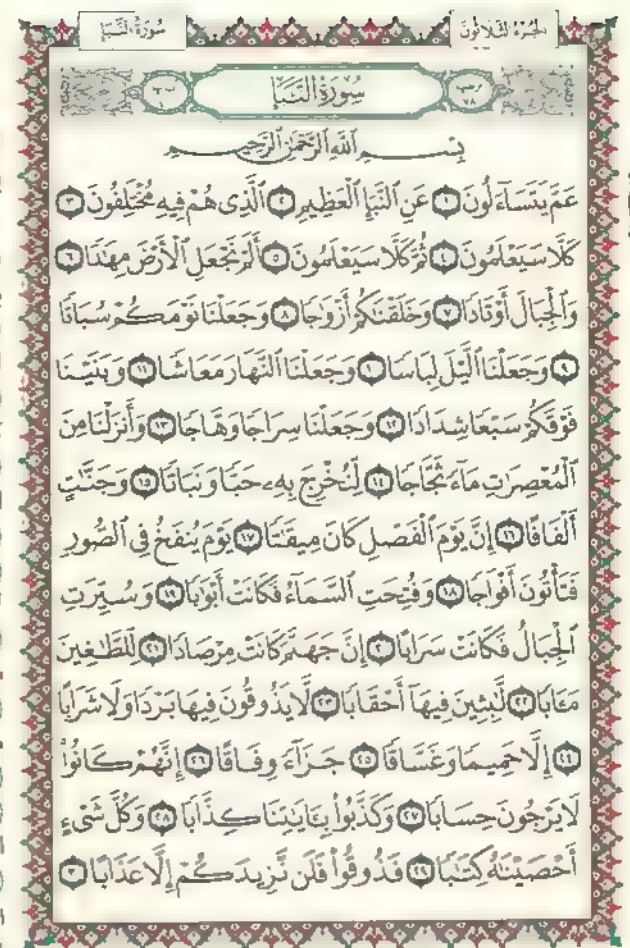 سُورَةُ النَّبَإِ
الجُزءُ الثَّلَاثُونَ
سُورَةُ النَّبَإِ
بِسْمِ ٱللَّهِ ٱلرَّحْمَٰنِ ٱلرَّحِيمِ
عَمَّ يَتَسَآءَلُونَ ١ عَنِ ٱلنَّبَإِ ٱلْعَظِيمِ ٢ ٱلَّذِى هُمْ فِيهِ مُخْتَلِفُونَ ٣
كَلَّا سَيَعْلَمُونَ ٤ ثُمَّ كَلَّا سَيَعْلَمُونَ ٥ أَلَمْ نَجْعَلِ ٱلْأَرْضَ مِهَٰدًا ٦
وَٱلْجِبَالَ أَوْتَادًا ٧ وَخَلَقْنَٰكُمْ أَزْوَٰجًا ٨ وَجَعَلْنَا نَوْمَكُمْ سُبَاتًا
٩ وَجَعَلْنَا ٱلَّيْلَ لِبَاسًا ١٠ وَجَعَلْنَا ٱلنَّهَارَ مَعَاشًا ١١ وَبَنَيْنَا
فَوْقَكُمْ سَبْعًا شِدَادًا ١٢ وَجَعَلْنَا سِرَاجًا وَهَّاجًا ١٣ وَأَنزَلْنَا مِنَ
ٱلْمُعْصِرَٰتِ مَآءً ثَجَّاجًا ١٤ لِّنُخْرِجَ بِهِۦ حَبًّا وَنَبَاتًا ١٥ وَجَنَّٰتٍ
أَلْفَافًا ١٦ إِنَّ يَوْمَ ٱلْفَصْلِ كَانَ مِيقَٰتًا ١٧ يَوْمَ يُنفَخُ فِى ٱلصُّورِ
فَتَأْتُونَ أَفْوَاجًا ١٨ وَفُتِحَتِ ٱلسَّمَآءُ فَكَانَتْ أَبْوَٰبًا ١٩ وَسُيِّرَتِ
ٱلْجِبَالُ فَكَانَتْ سَرَابًا ٢٠ إِنَّ جَهَنَّمَ كَانَتْ مِرْصَادًا ٢١ لِّلطَّٰغِينَ
مَـَٔابًا ٢٢ لَّٰبِثِينَ فِيهَآ أَحْقَابًا ٢٣ لَّا يَذُوقُونَ فِيهَا بَرْدًا وَلَا شَرَابًا
٢٤ إِلَّا حَمِيمًا وَغَسَّاقًا ٢٥ جَزَآءً وِفَاقًا ٢٦ إِنَّهُمْ كَانُوا۟
لَا يَرْجُونَ حِسَابًا ٢٧ وَكَذَّبُوا۟ بِـَٔايَٰتِنَا كِذَّابًا ٢٨ وَكُلَّ شَىْءٍ
أَحْصَيْنَٰهُ كِتَٰبًا ٢٩ فَذُوقُوا۟ فَلَن نَّزِيدَكُمْ إِلَّا عَذَابًا ٣٠